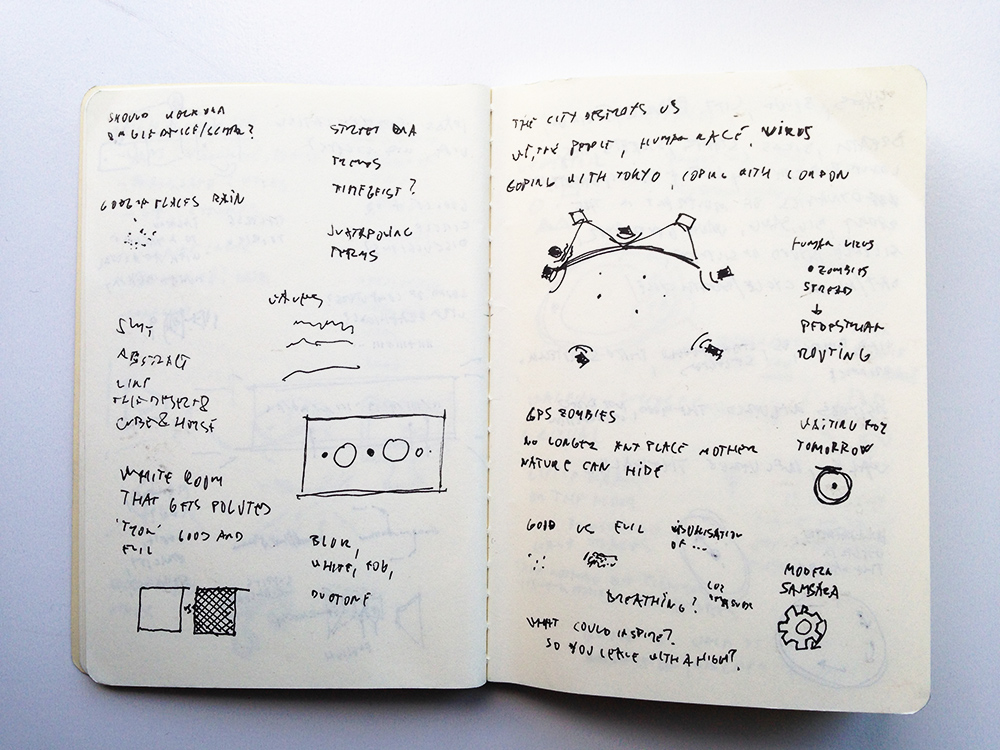 SHOULD
STREET
TRENDS
TIMEGEIST?
GOOGLE PLACES RAIN
JUXTAPOSING
TERMS
ABSTRACT
LIKE
THE DESERT &
CUBE & HORSE
WHITE ROOM
THAT GETS POLUTED
'TRON' GOOD AND
EVIL
BLUR,
WHITE, FOG,
DUOTONE
VS
THE CITY DESTROYS US
WE, THE PEOPLE, HUMAN RACE, VIRUS
COPING WITH TOKYO, COPING WITH LONDON
HUMAN VIRUS
ZOMBIES
SPREAD
PEDESTRIAN
ROUTING
GPS ZOMBIES
NO LONGER ANY PLACE MOTHER
NATURE CAN HIDE
WAITING FOR
TOMORROW
GOOD VS EVIL
VISUALISATION
OF ...
BREATHING?
CO2
MODERN
SAMSARA
WHAT COULD INSPIRE?
SO YOU LEAVE WITH A HIGH?